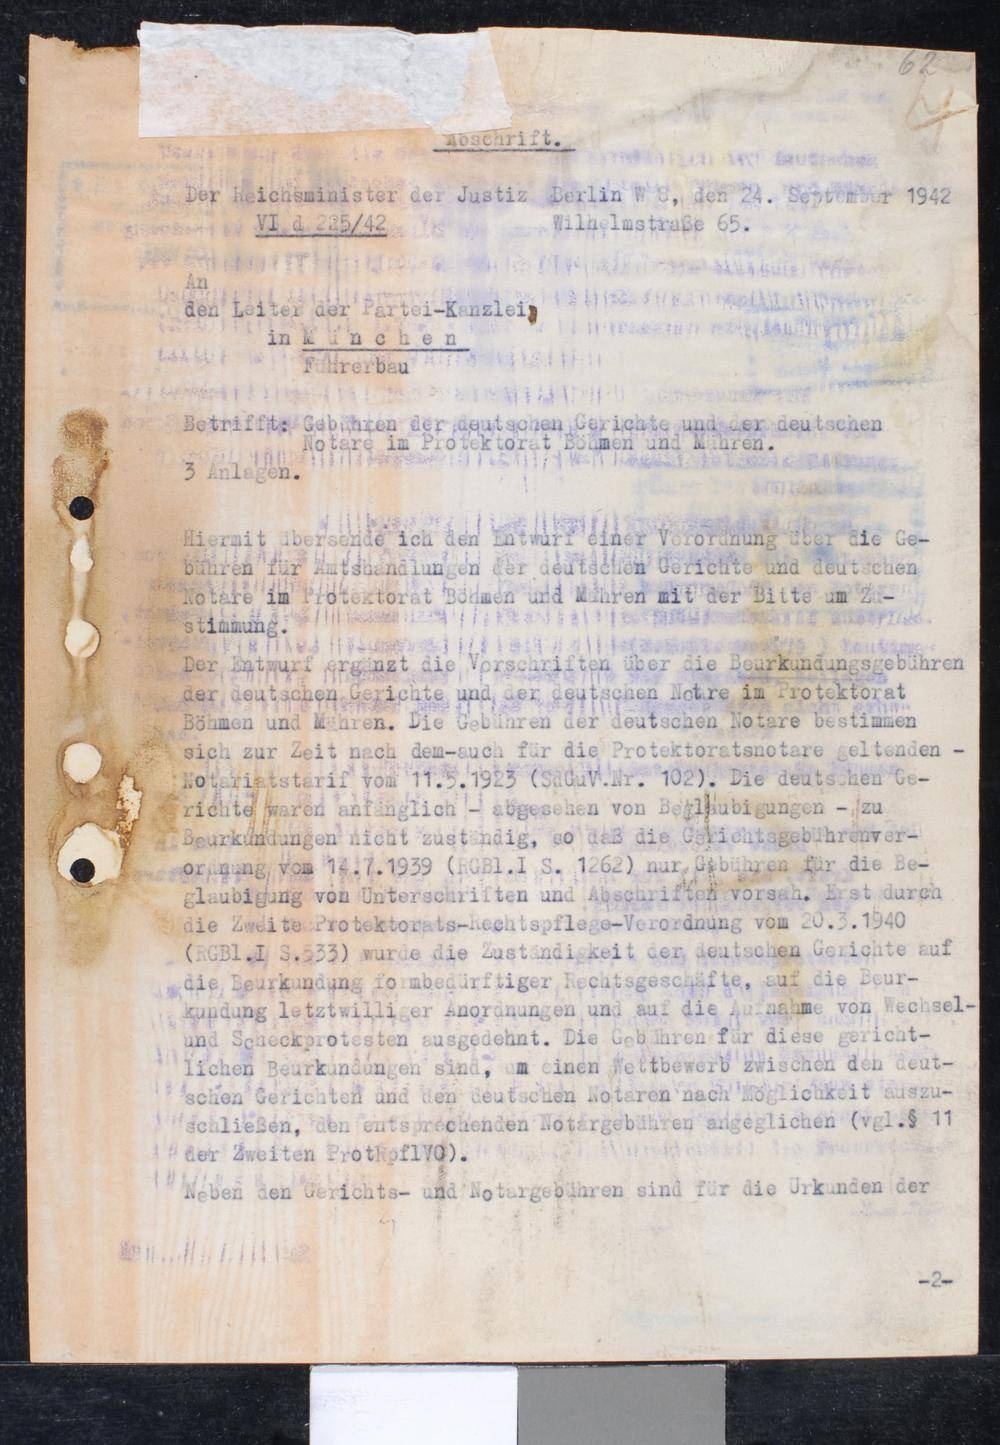 62
Abschrift.
Der Reichsminister der Justiz Berlin W 8, den 24. September 1942
VI d 225/42 Wilhelmstraße 65.
An
den Leiter der Partei-Kanzlei,
in München
Führerbau
Betrifft: Gebühren der deutschen Gerichte und der deutschen
Notare im Protektorat Böhmen und Mähren.
3 Anlagen.
Hiermit übersende ich den Entwurf einer Verordnung über die Ge-
bühren für Amtshandlungen der deutschen Gerichte und deutschen
Notare im Protektorat Böhmen und Mähren mit der Bitte um Zu-
stimmung.
Der Entwurf ergänzt die Vorschriften über die Beurkundungsgebühren
der deutschen Gerichte und der deutschen Notare im Protektorat
Böhmen und Mähren. Die Gebühren der deutschen Notare bestimmen
sich zur Zeit nach dem-auch für die Protektoratsnotare geltenden -
Notariatstarif vom 11.5.1923 (SdGuV.Nr. 102). Die deutschen Ge-
richte waren anfänglich - abgesehen von Beglaubigungen - zu
Beurkundungen nicht zuständig, so daß die Gerichtsgebührenver-
ordnung vom 14.7.1939 (RGBl.I S. 1262) nur Gebühren für die Be-
glaubigung von Unterschriften und Abschriften vorsah. Erst durch
die Zweite Protektorats-Rechtspflege-Verordnung vom 20.3.1940
(RGBl.I S.533) wurde die Zuständigkeit der deutschen Gerichte auf
die Beurkundung formbedürftiger Rechtsgeschäfte, auf die Beur-
kundung letztwilliger Anordnungen und auf die Aufnahme von Wechsel-
und Scheckprotesten ausgedehnt. Die Gebühren für diese gericht-
lichen Beurkundungen sind, um einen Wettbewerb zwischen den deut-
schen Gerichten und den deutschen Notaren nach Möglichkeit auszu-
schließen, den entsprechenden Notargebühren angeglichen (vgl.§ 11
der Zweiten ProtRpflVO).
Neben den Gerichts- und Notargebühren sind für die Urkunden der
-2-